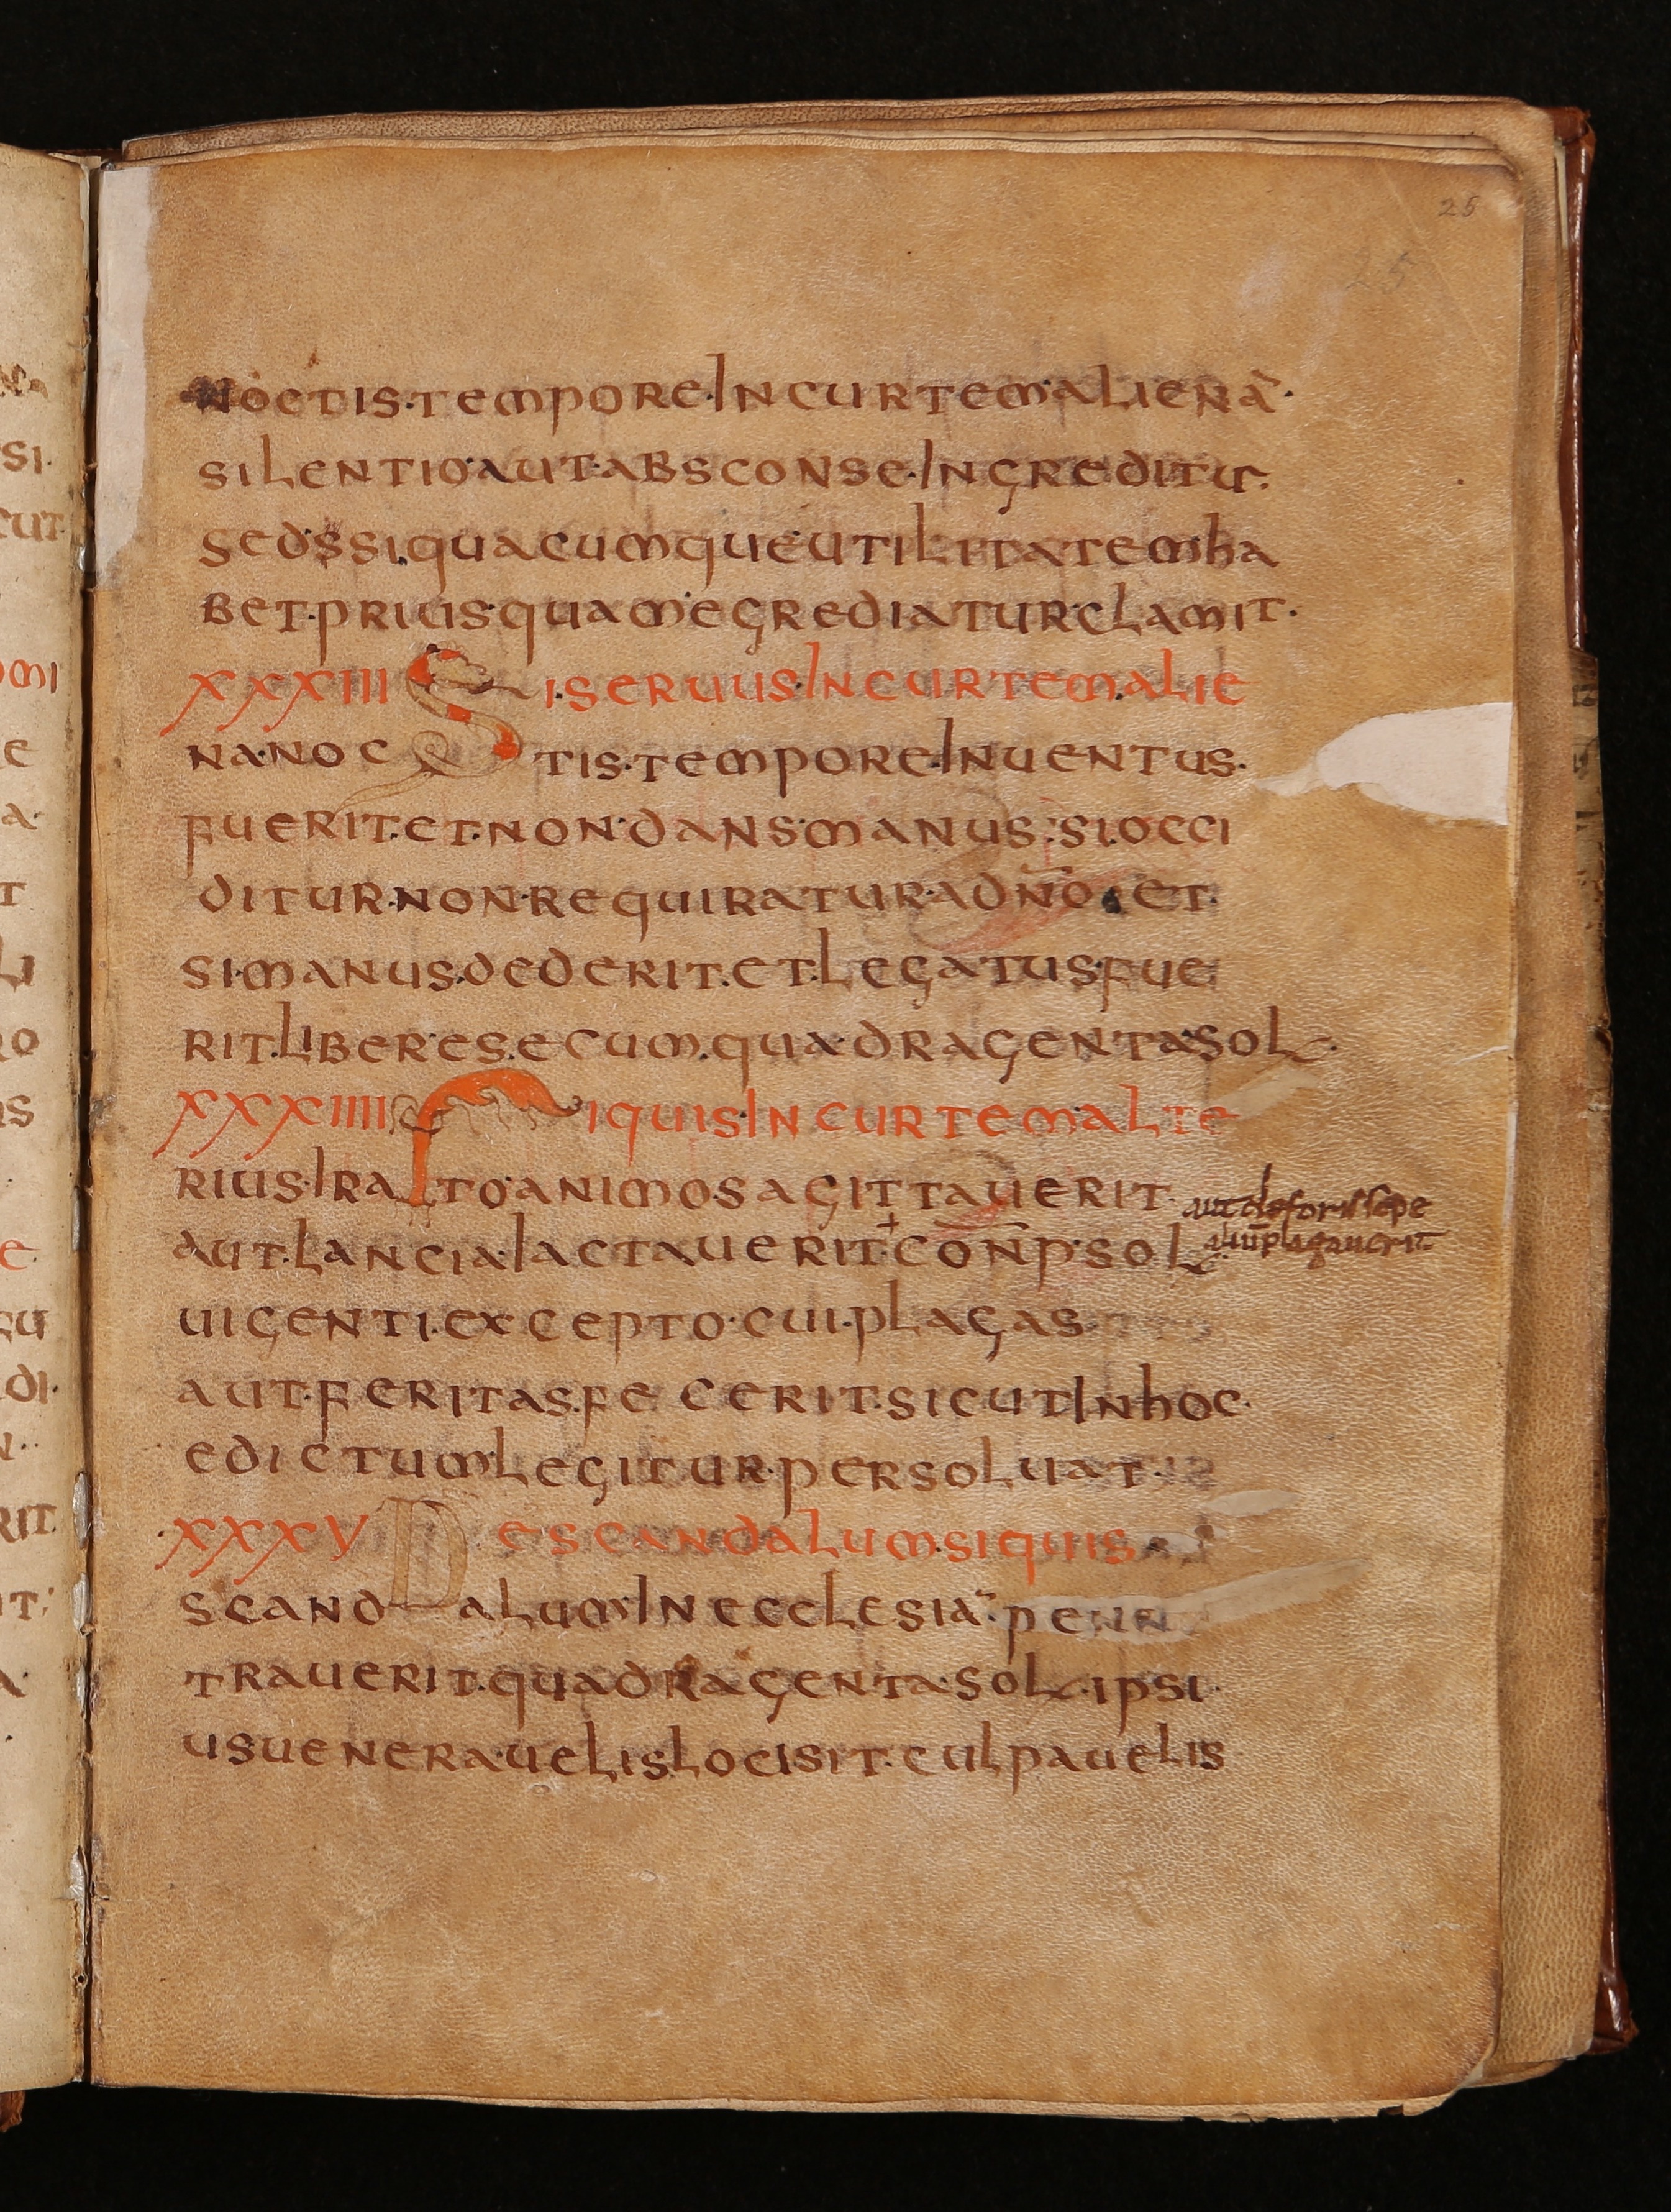 25
25
NOCTIS·TEMPORE·INCURTEM·ALIENĀ·
SILENTIO·AUT·ABSCONSE·INGREDITUR·
SED·SSI·QUACUMQUE·UTILITATEM·HA
BET·PRIUS·QUAM·EGREDIATUR·CLAMIT·
XXXIII SI·SERUUS·INCURTEM·ALIE
NA·NOC TIS·TEMPORE·INUENTUS·
FUERIT·ET·NON·DANS·MANUS·SI·OCCI
DITUR·NON·REQUIRATUR·AD·NŌ·ET·
SI·MANUS·DEDERIT·ET·LEGATUS·FUE
RIT·LIBERES·E·CUM·QUADRAGENTA·SOL·
XXXIIII SIQUIS·INCURTEM·ALTE
RIUS·IRA TO·ANIMO·SAGITTAUERIT·
aut de foris sepe
AUT·LANCIA·IACTAUERIT·+COÑP·SOL·
aliū plagauerit
UIGENTI·EXCEPTO·CUI·PLAGAS
AUT·FERITAS·FE CERIT·SICUT·INHOC·
EDICTUM·LEGITUR·PERSOLUAT·
·XXXV DE SCANDALUM·SIQUIS
SCAND ALUM·IN ECCLESIA·PENN
TRAUERIT·QUADRAGENTA·SOL·IPSI·
US UENERAUELIS·LOCI SIT·CULPAUELIS